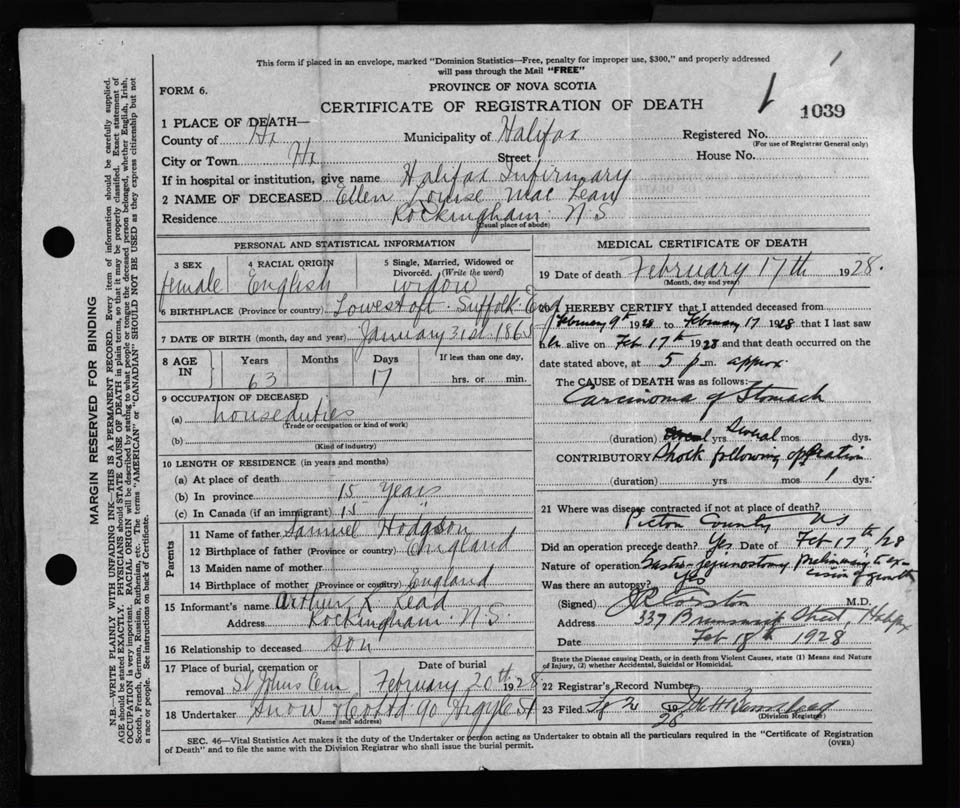 This form if placed in an envelope, marked "Dominion Statistics—Free, penalty for improper use, $300," and properly addressed
will pass through the Mail "FREE"
FORM 6.
PROVINCE OF NOVA SCOTIA
CERTIFICATE OF REGISTRATION OF DEATH
1039
1 PLACE OF DEATH—
County of Hx Municipality of Halifax Registered No.
(For use of Registrar General only)
City or Town Hx Street House No.
If in hospital or institution, give name Halifax Infirmary
2 NAME OF DECEASED Ellen Louise Mac Lean
Residence Rockingham N.S
(Usual place of abode)
PERSONAL AND STATISTICAL INFORMATION
3 SEX 4 RACIAL ORIGIN 5 Single, Married, Widowed or
Divorced. (Write the word)
female English widow
6 BIRTHPLACE (Province or country) Lowestoft Suffolk Eng
7 DATE OF BIRTH (month, day and year) January 31st 1865
8 AGE IN Years Months Days If less than one day,
63 17 hrs. or min.
9 OCCUPATION OF DECEASED
(a) house duties
(Trade or occupation or kind of work)
(b)
(Kind of industry)
10 LENGTH OF RESIDENCE (in years and months)
(a) At place of death
(b) In province 15 years
(c) In Canada (if an immigrant) 15 "
Parents
11 Name of father Samuel Hodgson
12 Birthplace of father (Province or country) England
13 Maiden name of mother
14 Birthplace of mother (Province or country) England
15 Informant's name Arthur K. Read
Address Rockingham N.S.
16 Relationship to deceased son
17 Place of burial, cremation or Date of burial
removal St Johns Cem February 20th 1928
18 Undertaker Snow & Co Ltd 90 Argyle St
(Name and address)
MEDICAL CERTIFICATE OF DEATH
19 Date of death February 17th 1928.
(Month, day and year)
20 I HEREBY CERTIFY that I attended deceased from
February 9th 1928 to February 17 1928 that I last saw
her alive on Feb 17th 1928 and that death occurred on
date stated above, at 5 p.m. approx.
The CAUSE OF DEATH was as follows:
Carcinoma of Stomach
(duration) yrs Several mos dys.
CONTRIBUTORY Shock following operation
(duration) yrs mos 1 dys.
21 Where was disease contracted if not at place of death?
Pictou County NS
Did an operation precede death? Yes Date of Feb 17th/28
Nature of operation Gastro-jejunostomy preliminary to ex-
cision of growth
Was there an autopsy? Yes
(Signed) J R Corston M.D.
Address 337 Brunswick Street, Halifax
Date Feb 18th 1928
State the Disease causing Death, or in death from Violent Causes, state (1) Means and Nature
of Injury, (2) whether Accidental, Suicidal or Homicidal.
22 Registrar's Record Number
23 Filed 19 28
(Division Registrar)
SEC. 46—Vital Statistics Act makes it the duty of the Undertaker or person acting as Undertaker to obtain all the particulars required in the "Certificate of Registration
of Death" and to file the same with the Division Registrar who shall issue the burial permit.
(OVER)
MARGIN RESERVED FOR BINDING
N.B.—WRITE PLAINLY WITH UNFADING INK—THIS IS A PERMANENT RECORD. Every item of information should be carefully supplied.
AGE should be stated EXACTLY. PHYSICIANS should STATE CAUSE OF DEATH in plain terms, so that it may be properly classified. Exact statement of
OCCUPATION is very important. RACIAL ORIGIN will be described by stating to what people or tongue the deceased person belonged, whether English, Irish,
Scotch, French, German, Russian, Ruthenian, etc. The terms "AMERICAN" or "CANADIAN" SHOULD NOT BE USED as they express citizenship but not
a race or people. See instructions on back of Certificate.